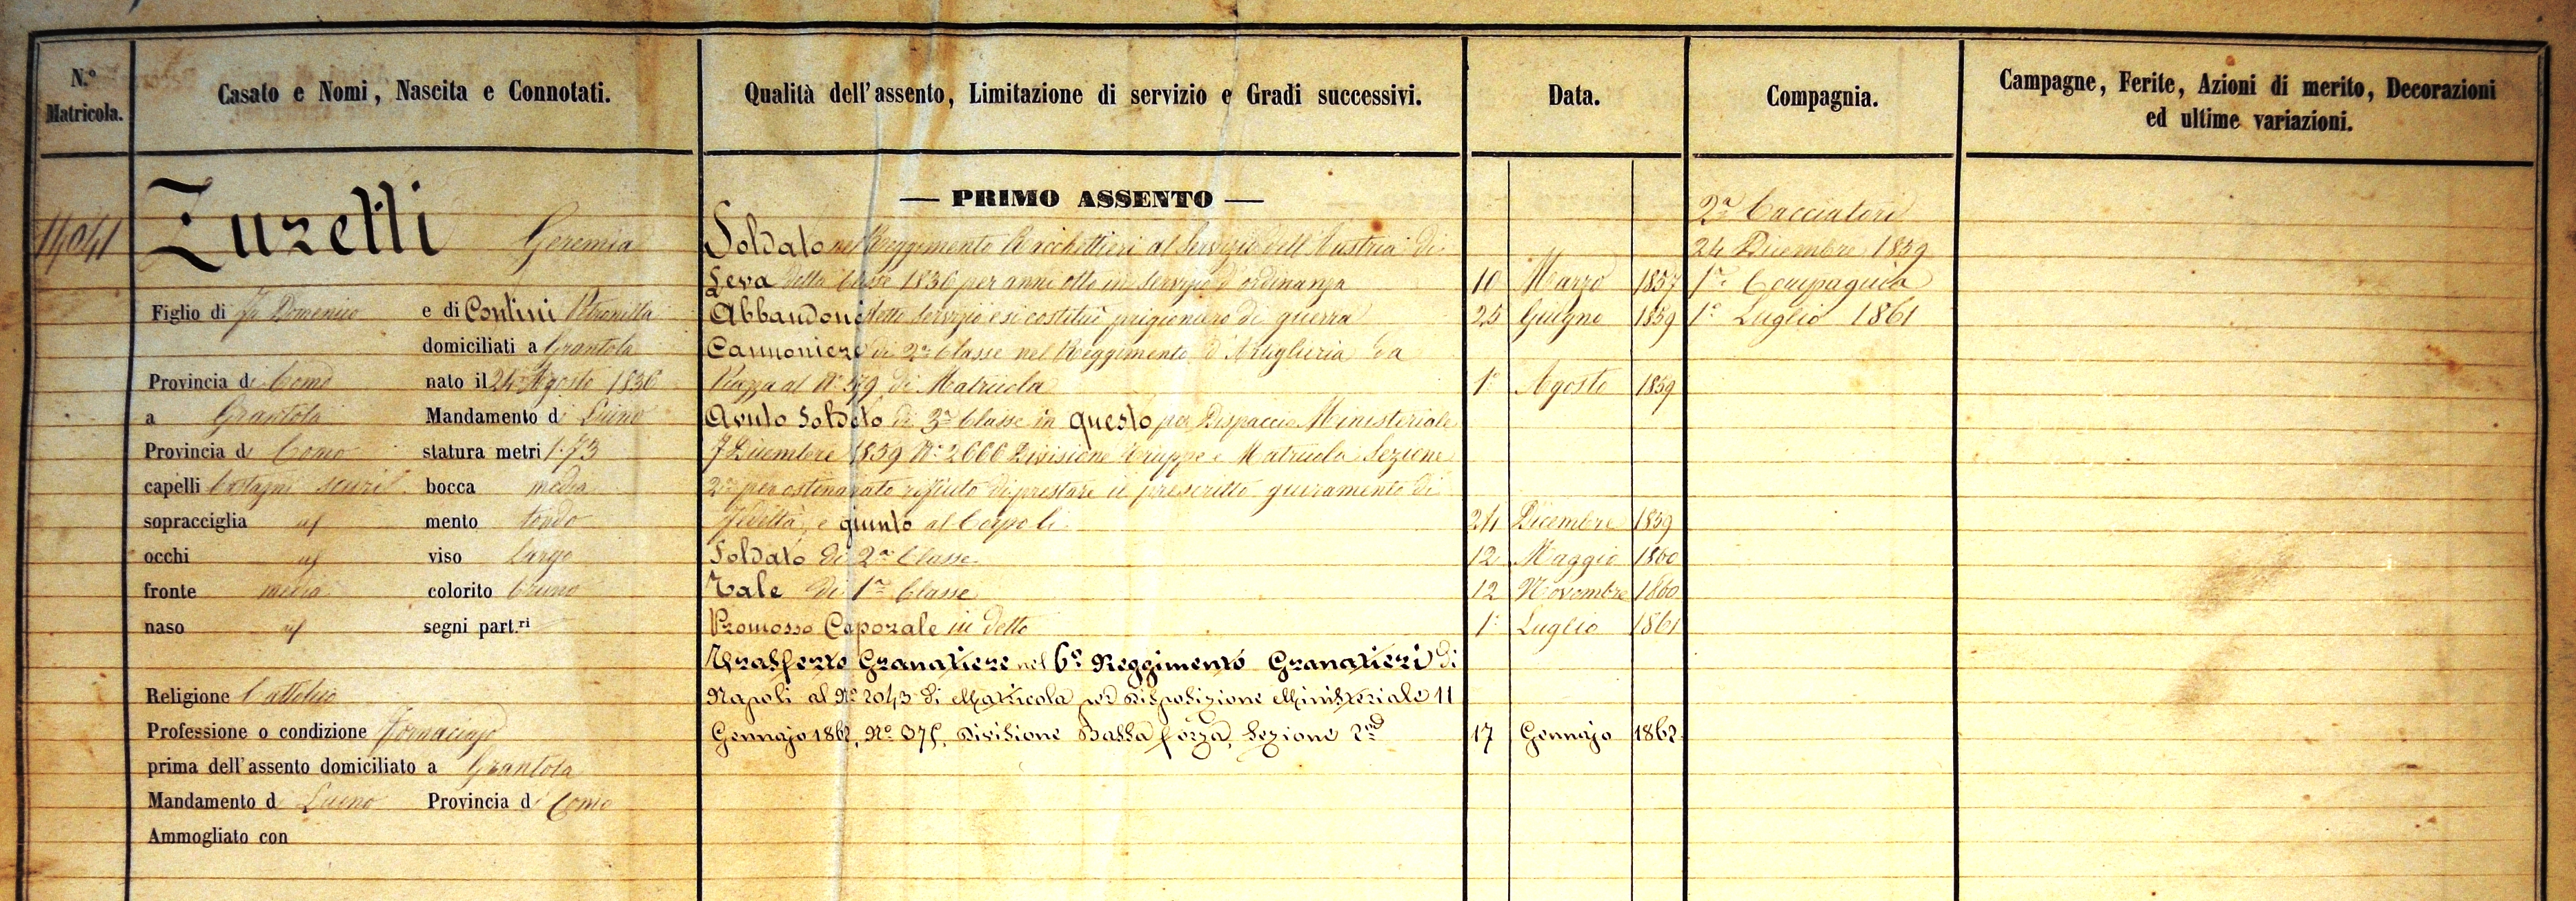 N.º Matricola.
Casato e Nomi, Nascita e Connotati.
Qualità dell'assento, Limitazione di servizio e Gradi successivi.
Data.
Compagnia.
Campagne, Ferite, Azioni di merito, Decorazioni
ed ultime variazioni.
14041
Zuretti Geremia
Figlio di fu Domenico e di Contini Petronilla
domiciliati a Grantola
Provincia di Como nato il 24 Agosto 1836
a Grantola Mandamento di Luino
Provincia di Como statura metri 1.73
capelli Castagni scuri bocca media
sopracciglia id mento tondo
occhi id viso largo
fronte media colorito bruno
naso id segni part.ri
Religione Cattolica
Professione o condizione Fornaciajo
prima dell'assento domiciliato a Grantola
Mandamento di Luino Provincia di Como
Ammogliato con
— PRIMO ASSENTO —
Soldato nel Reggimento Racchettieri al Servizio dell'Austria di
Leva della Classe 1836 per anni otto in servizio d'ordinanza 10 Marzo 1857
Abbandonò detto servizio e si costituì prigioniero di guerra 25 Giugno 1859
Cannoniere di 2ª Classe nel Reggimento d'Artiglieria da
Piazza al Nº 579 di Matricola 1º Agosto 1859
Avuto Soldato di 3ª Classe in questo per Dispaccio Ministeriale
7 Dicembre 1859 Nº 2666 Divisione Truppe e Matricola Sezione
2ª per ostinato rifiuto di prestare il prescritto giuramento di
Fedeltà, e giunto al Corpo li 24 Dicembre 1859
Soldato di 2ª Classe 12 Maggio 1860
Tale di 1ª Classe 12 Novembre 1860
Promosso Caporale in detto 1º Luglio 1861
Trasferto Granatiere nel 6º Reggimento Granatieri di
Napoli al Nº 2043 di Matricola per Disposizione Ministeriale 11
Gennajo 1862, Nº 375, Divisione Bassa forza, Sezione 2ª 17 Gennajo 1862
2ª Cacciatori
24 Dicembre 1859
1ª Compagnia
1º Luglio 1861